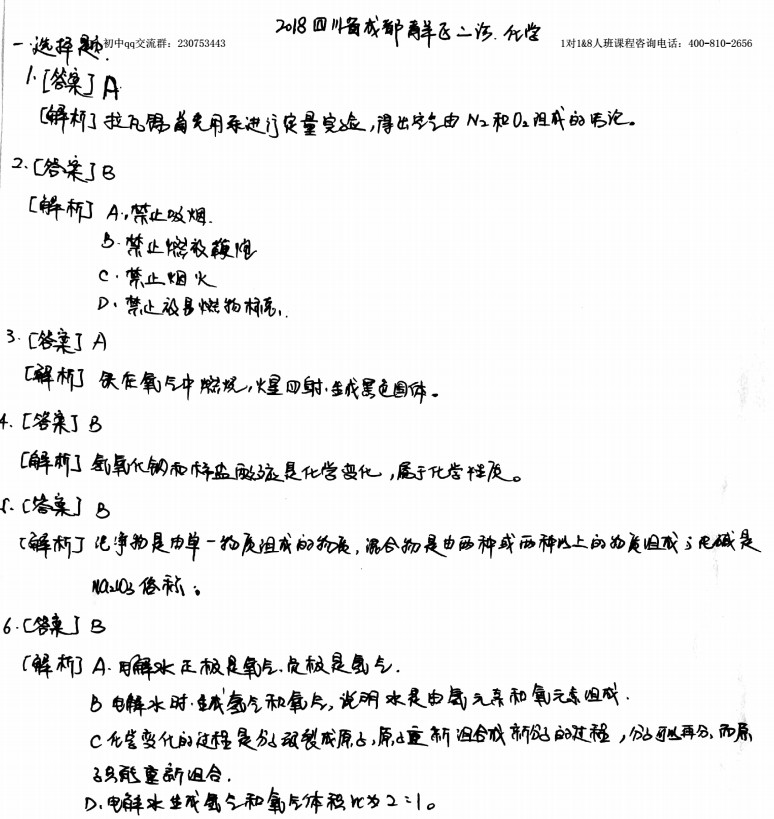 2018四川省成都青羊区二诊.化学
初中qq交流群：230753443
1对1&8人班课程咨询电话：400-810-2656
一.选择题.
1.[答案] A
[解析] 拉瓦锡首先用汞进行定量实验,得出空气由N₂和O₂组成的结论。
2.[答案] B
[解析] A.禁止吸烟.
B.禁止燃放鞭炮
C.禁止烟火
D.禁止放易燃物标志.
3.[答案] A
[解析] 铁在氧气中燃烧,火星四射.生成黑色固体。
4.[答案] B
[解析] 氢氧化钠和稀盐酸反应是化学变化,属于化学性质。
5.[答案] B
[解析] 纯净物是由单一物质组成的物质,混合物是由两种或两种以上的物质组成;纯碱是
Na₂CO₃俗称;
6.[答案] B
[解析] A.电解水正极是氧气.负极是氢气.
B 电解水时.生成氢气和氧气,说明水是由氢元素和氧元素组成.
C 化学变化的过程是分子破裂成原子,原子重新组合成新分子的过程,分子可以再分,而原
子只能重新组合.
D.电解水生成氢气和氧气体积比为2:1。